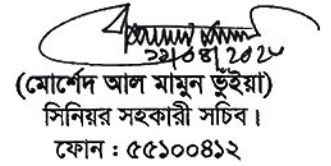 (মোর্শেদ আল মামুন ভূঁইয়া)
সিনিয়র সহকারী সচিব।
ফোন : ৫৫১০০৪১২